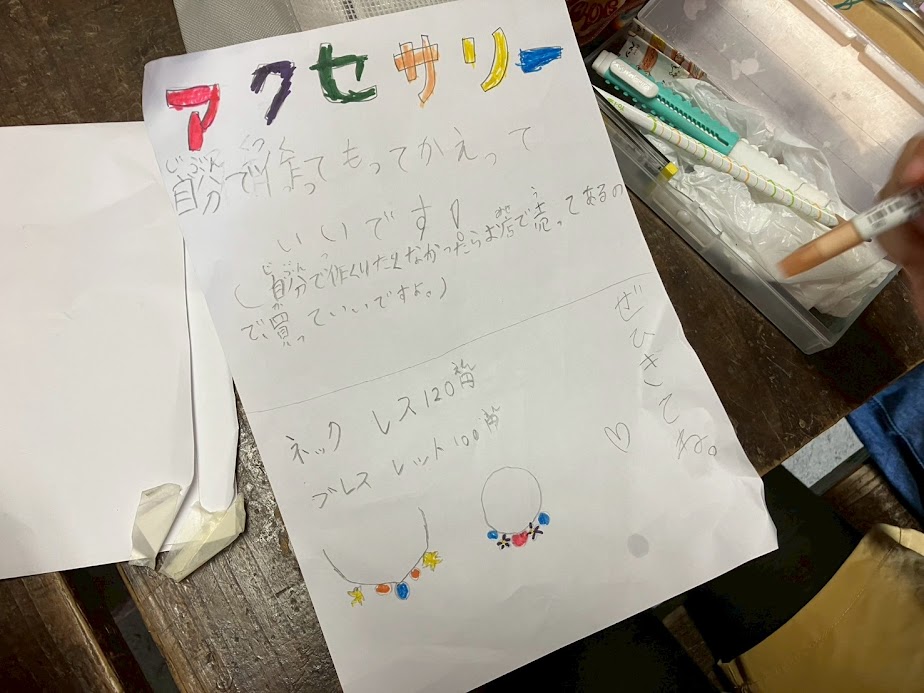 アクセサリー
じぶん つく
自分で作ってもってかえって
いいです!
じぶん つ みせ う
(自分で作くりたくなかったらお店で売ってあるの
か
で、買っていいですよ。)
ぜひきてね。♡
ネックレス120円
ブレスレット100円